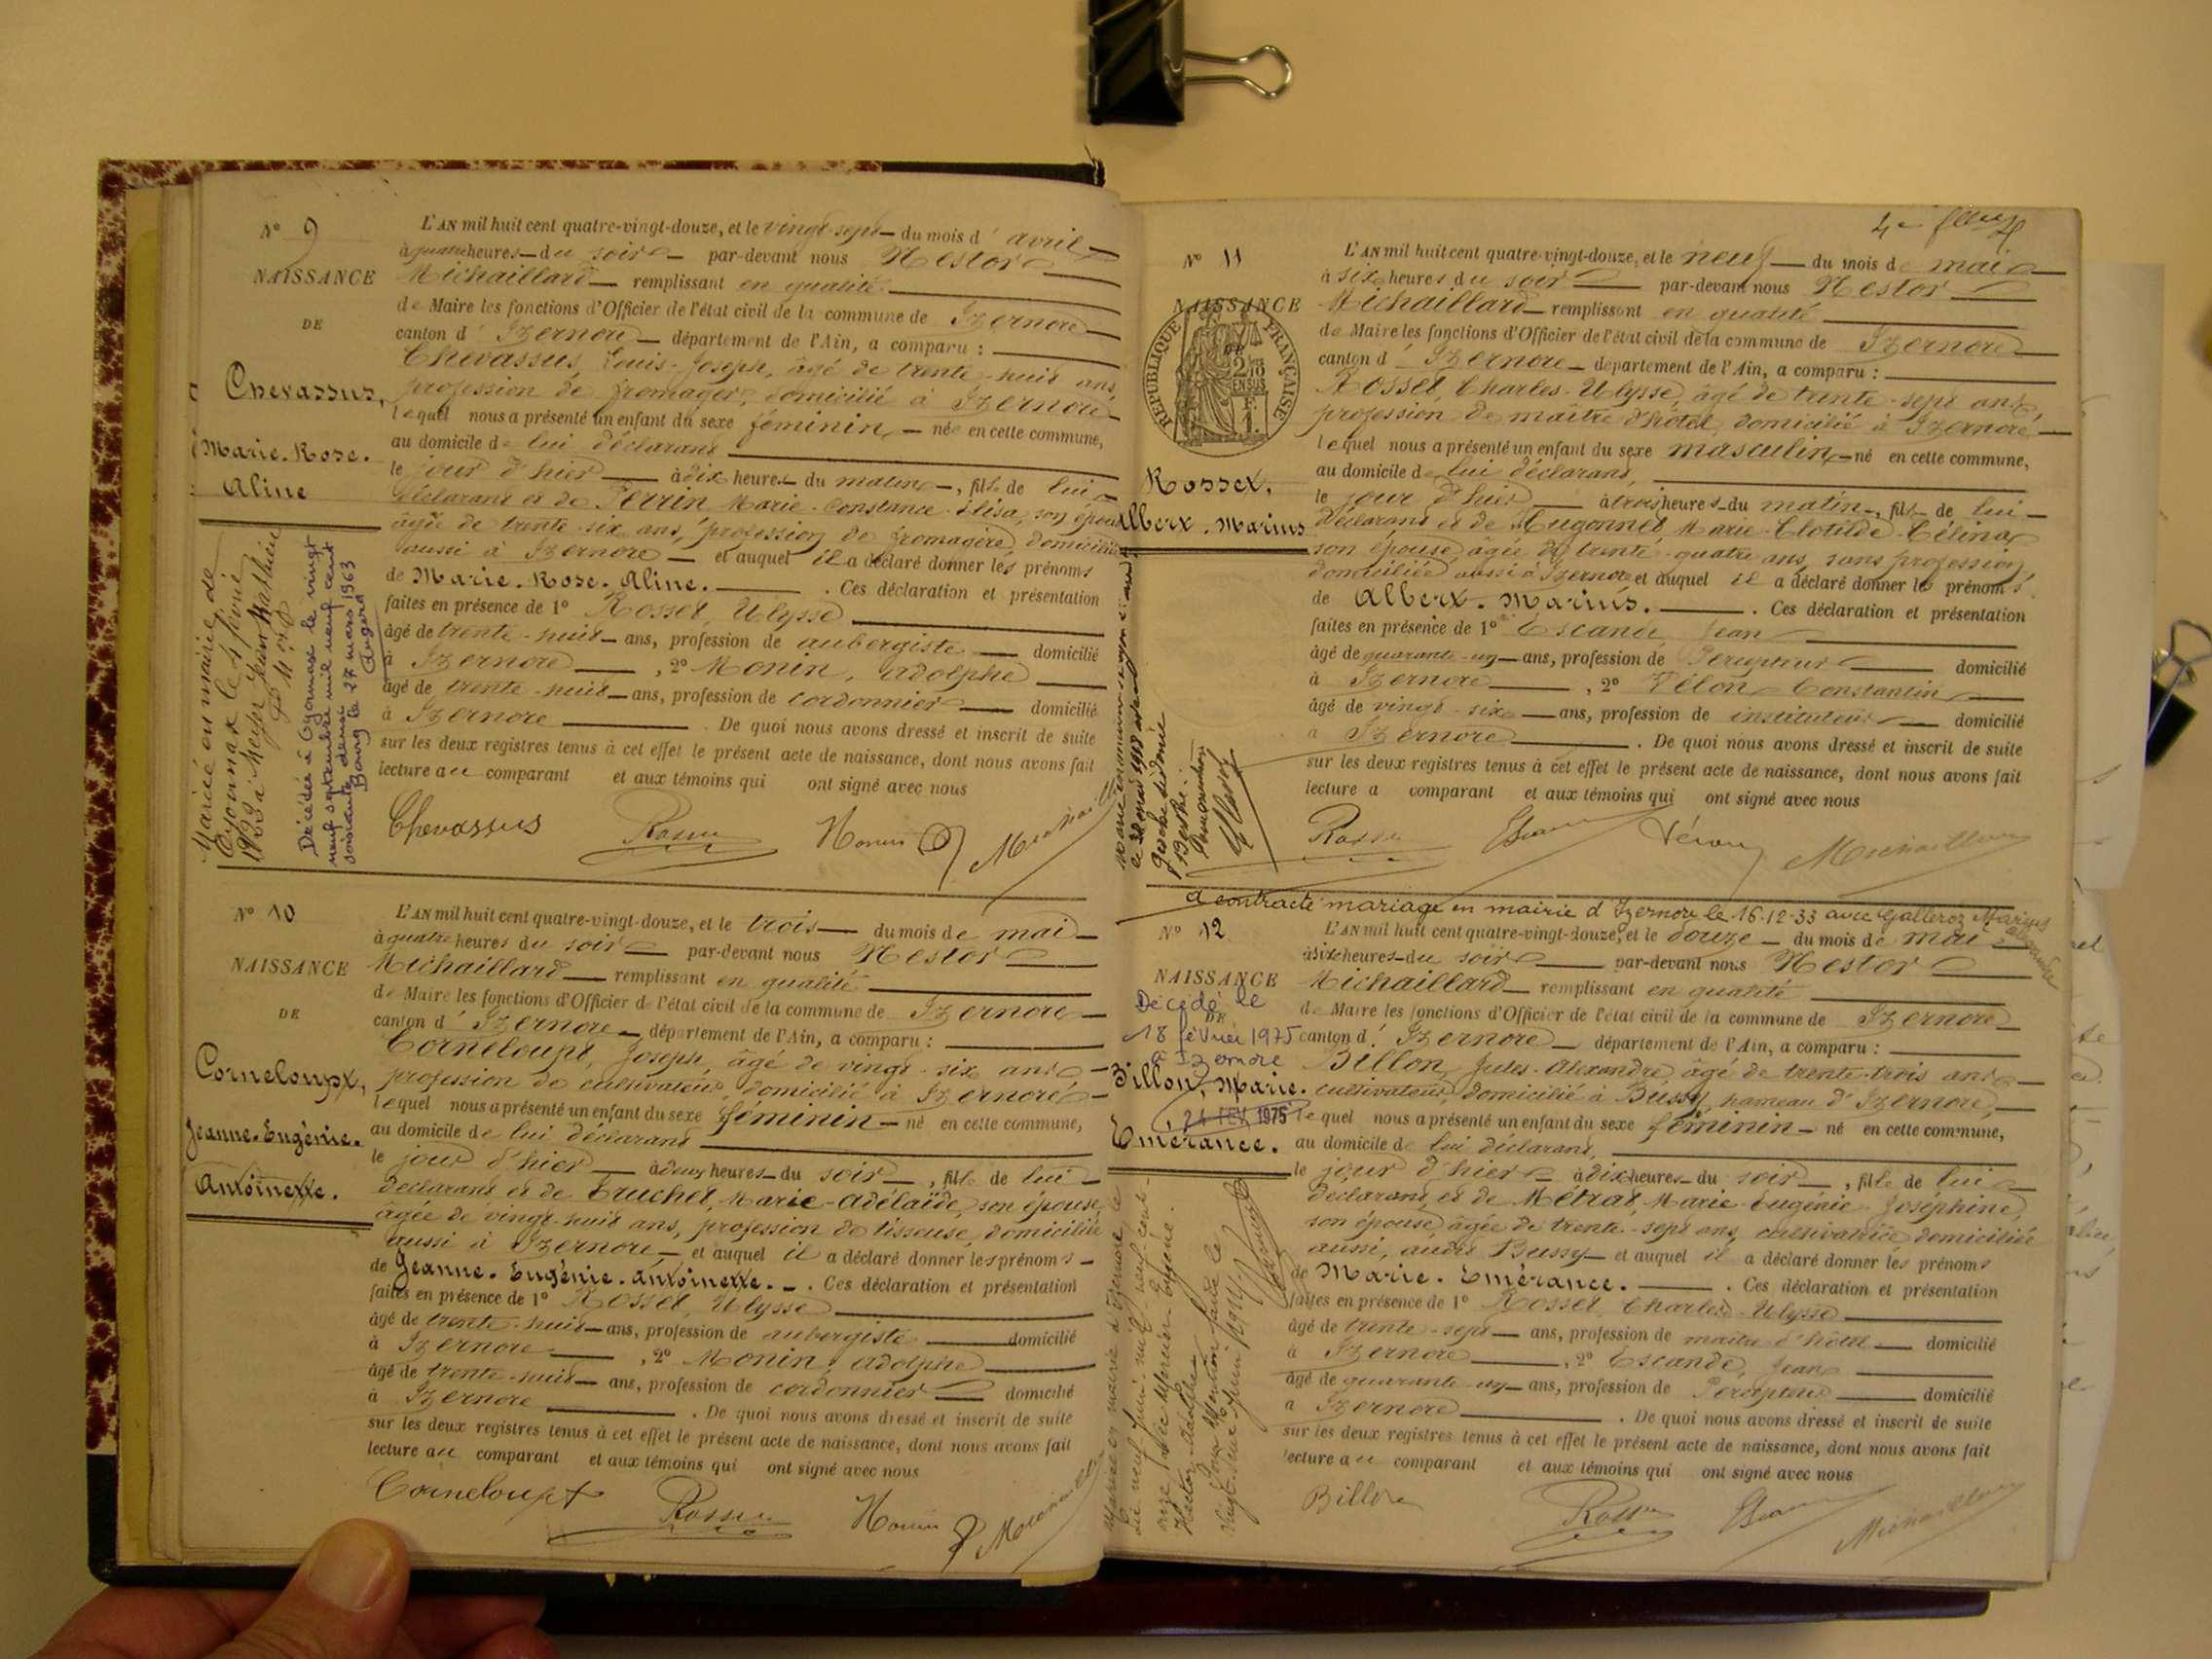 N° 9
NAISSANCE
DE
Chevassus,
Marie-Rose-
Aline
Mariée en mairie de
Oyonnax le 4
1922 à Meyer Jean Mathieu
Décédée à Oyonnax le vingt
neuf septembre mil neuf cent
soixante deux
Bourg le 27 mars 1963
L'AN mil huit cent quatre-vingt-douze, et le vingt-sept du mois d'avril
à quatre heures du soir par-devant nous Nestor
Michaillard remplissant en qualité
de Maire les fonctions d'Officier de l'état civil de la commune de Izernore
canton d'Izernore département de l'Ain, a comparu :
Chevassus, Louis-Joseph, âgé de trente-huit ans,
profession de fromager, domicilié à Izernore
lequel nous a présenté un enfant du sexe féminin née en cette commune,
au domicile de lui déclarant
le jour d'hier à dix heures du matin, fille de lui
déclarant et de Perrin Marie-Constance-Elisa, son épouse
âgée de trente-six ans, profession de fromagère, domiciliée
aussi à Izernore et auquel il a déclaré donner les prénoms
de Marie-Rose-Aline. Ces déclaration et présentation
faites en présence de 1° Rosset, Ulysse
âgé de trente-huit ans, profession de aubergiste domicilié
à Izernore, 2° Monin, Adolphe
âgé de trente-huit ans, profession de cordonnier domicilié
à Izernore. De quoi nous avons dressé et inscrit de suite
sur les deux registres tenus à cet effet le présent acte de naissance, dont nous avons fait
lecture au comparant et aux témoins qui ont signé avec nous
Chevassus Rosset Monin Michaillard
N° 10
NAISSANCE
DE
Corneloupt,
Jeanne-Eugénie-
Antoinette.
L'AN mil huit cent quatre-vingt-douze, et le trois du mois de mai
à quatre heures du soir par-devant nous Nestor
Michaillard remplissant en qualité
de Maire les fonctions d'Officier de l'état civil de la commune de Izernore
canton d'Izernore département de l'Ain, a comparu :
Corneloupt, Joseph, âgé de vingt-six ans
profession de cultivateur, domicilié à Izernore
lequel nous a présenté un enfant du sexe féminin né en cette commune,
au domicile de lui déclarant
le jour d'hier à deux heures du soir, fille de lui
déclarant et de Truchet, Marie-Adélaïde, son épouse,
âgée de vingt-huit ans, profession de tisseuse, domiciliée
aussi à Izernore et auquel il a déclaré donner les prénoms
de Jeanne-Eugénie-Antoinette. Ces déclaration et présentation
faites en présence de 1° Rosset, Ulysse
âgé de trente-huit ans, profession de aubergiste domicilié
à Izernore, 2° Monin, Adolphe
âgé de trente-huit ans, profession de cordonnier domicilié
à Izernore. De quoi nous avons dressé et inscrit de suite
sur les deux registres tenus à cet effet le présent acte de naissance, dont nous avons fait
lecture au comparant et aux témoins qui ont signé avec nous
Corneloupt Rosset Monin Michaillard
N° 11
NAISSANCE
DE
RÉPUBLIQUE FRANÇAISE
2/10 EN SUS
Rosset,
Albert-Marius
L'AN mil huit cent quatre-vingt-douze, et le neuf du mois de mai
à six heures du soir par-devant nous Nestor
Michaillard remplissant en qualité
de Maire les fonctions d'Officier de l'état civil de la commune de Izernore
canton d'Izernore département de l'Ain, a comparu :
Rosset, Charles-Ulysse, âgé de trente-sept ans,
profession de maître d'hôtel, domicilié à Izernore
lequel nous a présenté un enfant du sexe masculin né en cette commune,
au domicile de lui déclarant,
le jour d'hier à trois heures du matin, fils de lui
déclarant et de Hugonnet Marie-Clotilde-Célina
son épouse, âgée de trente-quatre ans, sans profession,
domiciliée aussi à Izernore et auquel il a déclaré donner les prénoms
de Albert-Marius. Ces déclaration et présentation
faites en présence de 1° Escande Jean
âgé de quarante-un ans, profession de Percepteur domicilié
à Izernore, 2° Constantin
âgé de vingt-six ans, profession de instituteur domicilié
à Izernore. De quoi nous avons dressé et inscrit de suite
sur les deux registres tenus à cet effet le présent acte de naissance, dont nous avons fait
lecture a comparant et aux témoins qui ont signé avec nous
Rosset Michaillard
a contracté mariage en mairie d'Izernore le 16-12-33 avec Marius
N° 12
NAISSANCE
DE
Décédé le
18 février 1975
à Izernore
Billon, Marie-
24 FEV 1975
Emérance.
L'AN mil huit cent quatre-vingt-douze, et le douze du mois de mai
à six heures du soir par-devant nous Nestor
Michaillard remplissant en qualité
de Maire les fonctions d'Officier de l'état civil de la commune de Izernore
canton d'Izernore département de l'Ain, a comparu :
Billon, Jules-Alexandre, âgé de trente-trois ans
cultivateur, domicilié à Bussy, hameau d'Izernore,
lequel nous a présenté un enfant du sexe féminin né en cette commune,
au domicile de lui déclarant,
le jour d'hier à dix heures du soir, fille de lui
déclarant et de Métral, Marie-Eugénie-Joséphine,
son épouse, âgée de trente-sept ans, cultivatrice domiciliée
aussi, audit Bussy et auquel il a déclaré donner les prénoms
de Marie-Emérance. Ces déclaration et présentation
faites en présence de 1° Rosset, Charles-Ulysse
âgé de trente-sept ans, profession de maître d'hôtel domicilié
à Izernore, 2° Escande, Jean
âgé de quarante-un ans, profession de Percepteur domicilié
à Izernore. De quoi nous avons dressé et inscrit de suite
sur les deux registres tenus à cet effet le présent acte de naissance, dont nous avons fait
lecture au comparant et aux témoins qui ont signé avec nous
Billon Rosset Michaillard